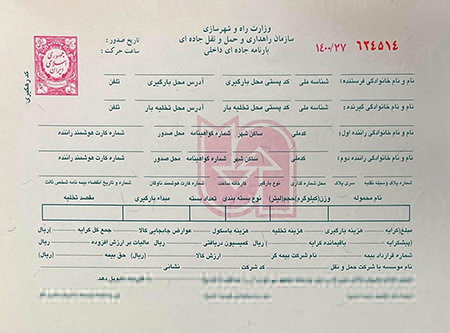 وزارت راه و شهرسازی
سازمان راهداری و حمل و نقل جاده ای
بارنامه جاده ای داخلی
تاریخ صدور :
ساعت حرکت :
۱۴۰۰/۲۷ ۶۲۴۵۱۴
کد رهگیری
نام و نام خانوادگی فرستنده: شناسه ملی کد پستی محل بارگیری آدرس محل بارگیری تلفن
نام و نام خانوادگی گیرنده: شناسه ملی کد پستی محل تخلیه بار آدرس محل تخلیه بار تلفن
نام و نام خانوادگی راننده اول: کدملی ساکن شهر شماره گواهینامه محل صدور شماره کارت هوشمند راننده
نام و نام خانوادگی راننده دوم: کدملی ساکن شهر شماره گواهینامه محل صدور شماره کارت هوشمند راننده
شماره پلاک وسیله نقلیه سری پلاک محل شماره گذاری نوع بارگیر کارخانه ساخت شماره کارت هوشمند ناوگان شماره و تاریخ انقضاء بیمه نامه شخص ثالث
نام محموله وزن(کیلوگرم)حجم(لیتر) نوع بسته بندی تعداد بسته مبداء بارگیری مقصد تخلیه
مبلغ(کرایه هزینه بارگیری هزینه تخلیه هزینه باسکول عوارض جابجایی کالا جمع کل کرایه (ریال
(پیشکرایه باقیمانده کرایه (ریال کمیسیون دریافتی (ریال مالیات بر ارزش افزوده (ریال
شماره قرارداد بیمه نام شرکت بیمه گر ارزش کالا (ریال) حق بیمه (ریال
نام موسسه یا شرکت حمل و نقل کد شرکت نشانی